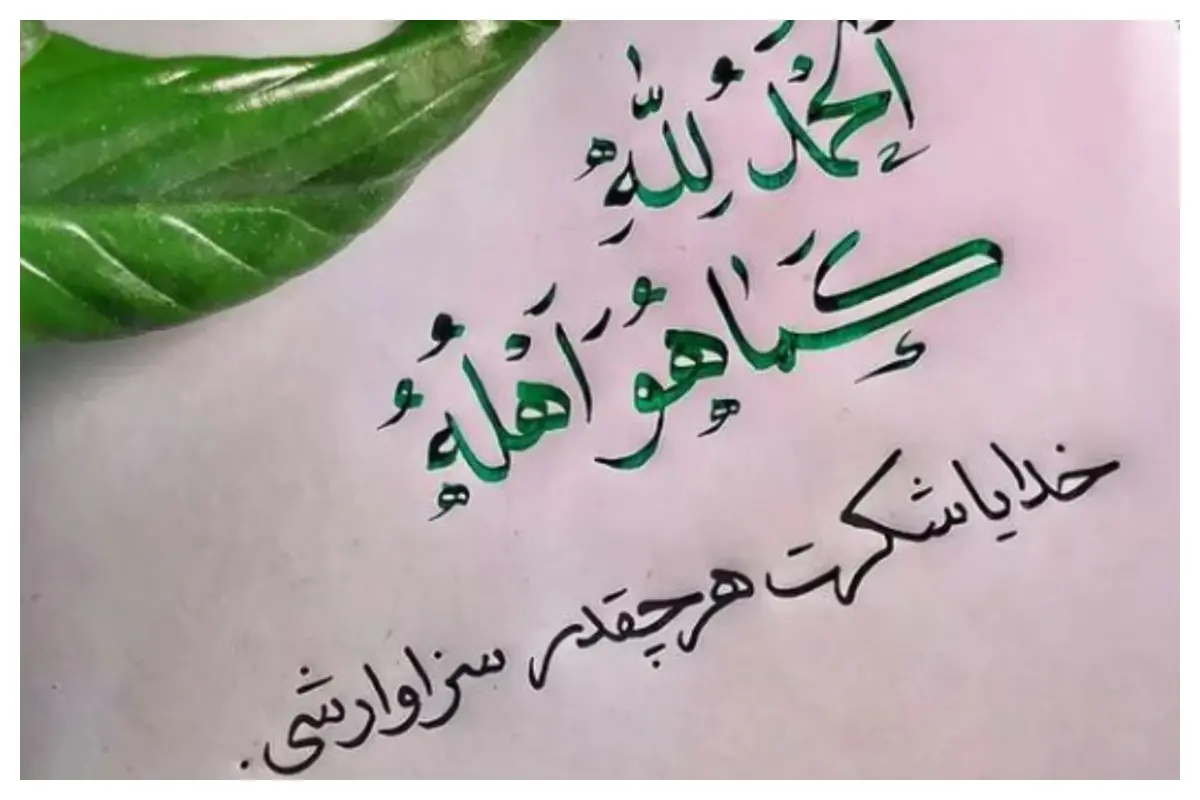 اَلْحَمْدُ لِلّٰهِ
كَمٰا هُوَ اَهْلُهُ
خدایا شکرت هرچقدر سزاوارشی.